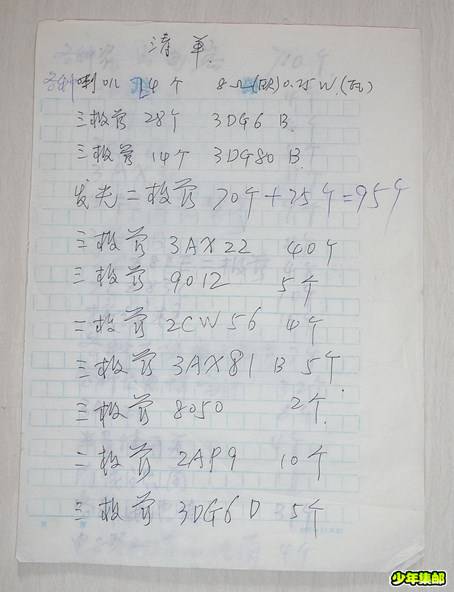 清单
各种喇叭 14个 8Ω(欧)0.25W.(瓦)
三极管 28个 3DG6 B
三极管 14个 3DG80 B
发光二极管 70个+25个=95个
三极管 3AX22 40个
三极管 9012 5个
二极管 2CW56 4个
三极管 3AX81 B 5个
三极管 8050 2个
二极管 2AP9 10个
三极管 3DG6D 35个
少年集邮